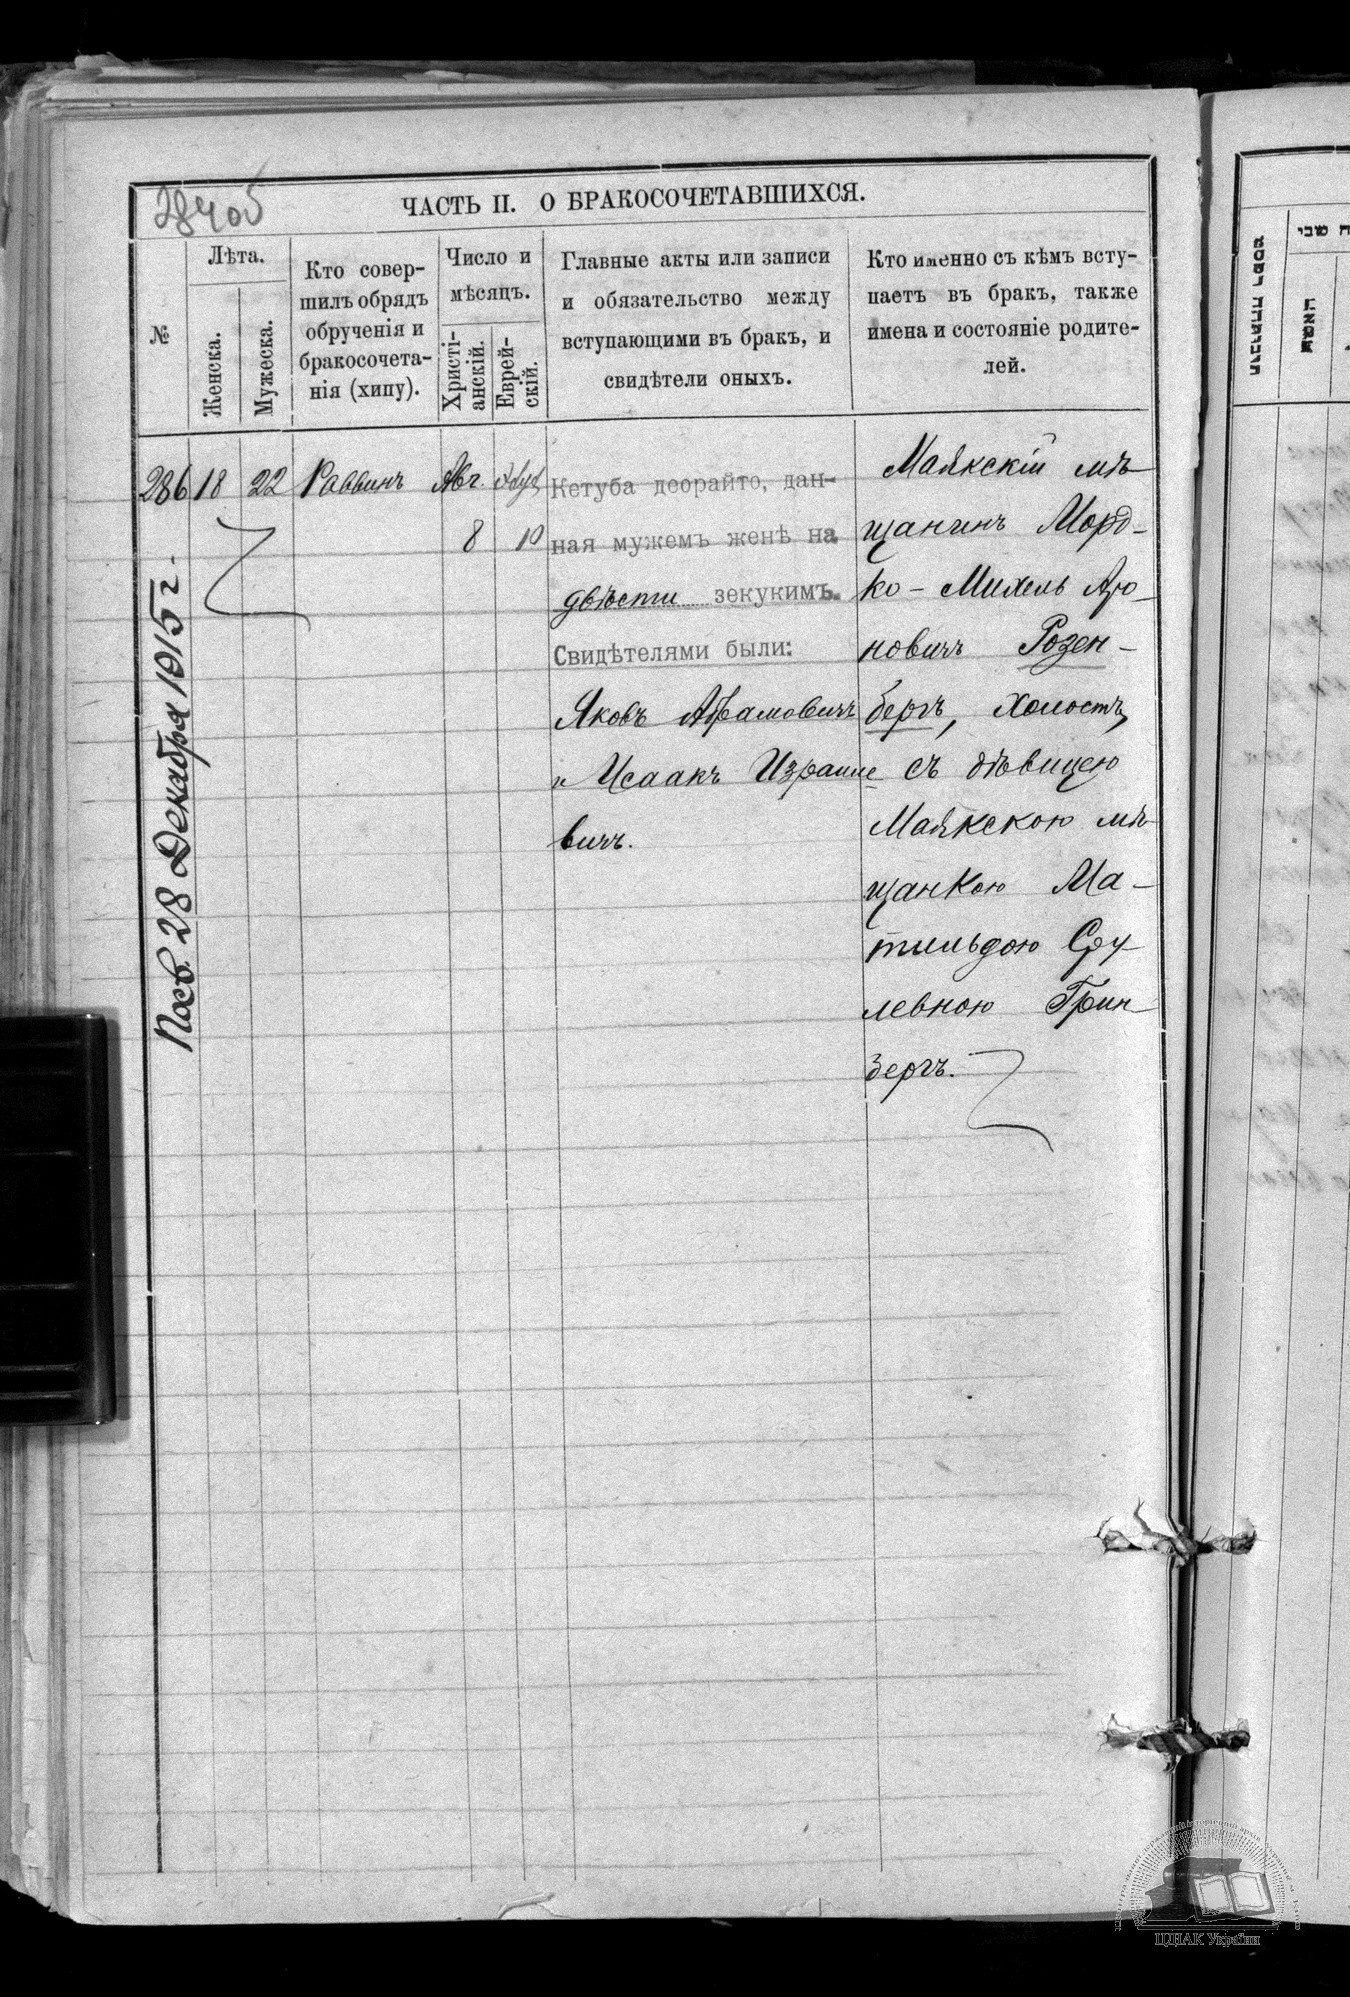 284 об
ЧАСТЬ II. О БРАКОСОЧЕТАВШИХСЯ.
№
Лѣта.
Женска.
Мужеска.
Кто совер-
шилъ обрядъ
обрученія и
бракосочета-
нія (хипу).
Число и
мѣсяцъ.
Христі-
анскій.
Еврей-
скій.
Главные акты или записи
и обязательство между
вступающими въ бракъ, и
свидѣтели оныхъ.
Кто именно съ кѣмъ всту-
паетъ въ бракъ, также
имена и состояніе родите-
лей.
286
18
22
Раввинъ
Авг.
8
10
Кетуба деорайто, дан-
ная мужемъ женѣ на
двѣсти зекукимъ.
Свидѣтелями были:
Яковъ Абрамовичъ
и Исаакъ Израиле
вичъ.
Маякскій мѣ-
щанинъ Морд-
ко-Михель Аро-
новичъ Розен-
бергъ, холостъ,
съ дѣвицею
Маякскою мѣ-
щанкою Ма-
тильдою Сру-
левною Грин-
бергъ.
Посв. 28 Декабря 1915 г.
ЦДІАК України